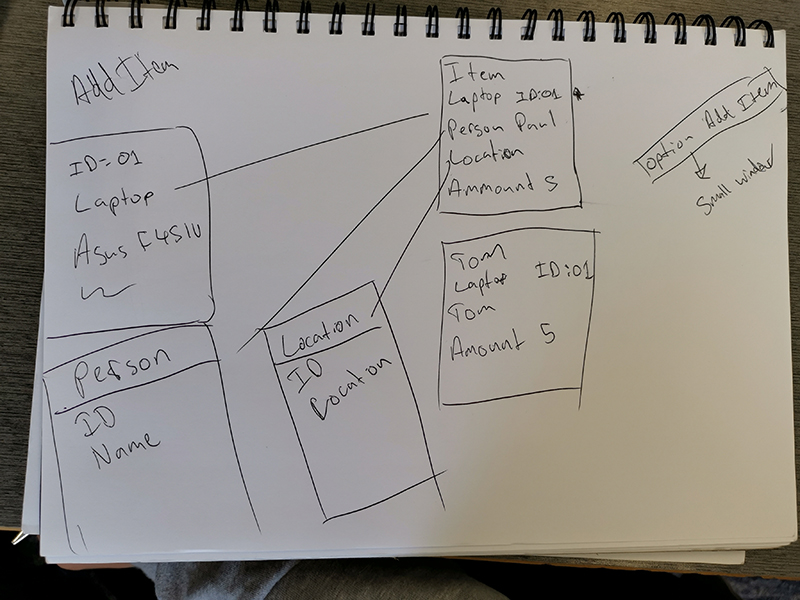 Add Item
ID: 01
Laptop
Asus F451U
Person
ID
Name
Location
ID
Location
Item
Laptop ID:01
Person Paul
Location
Ammount 5
Tom
Laptop ID:01
Tom
Amount 5
option Add Item
Small window